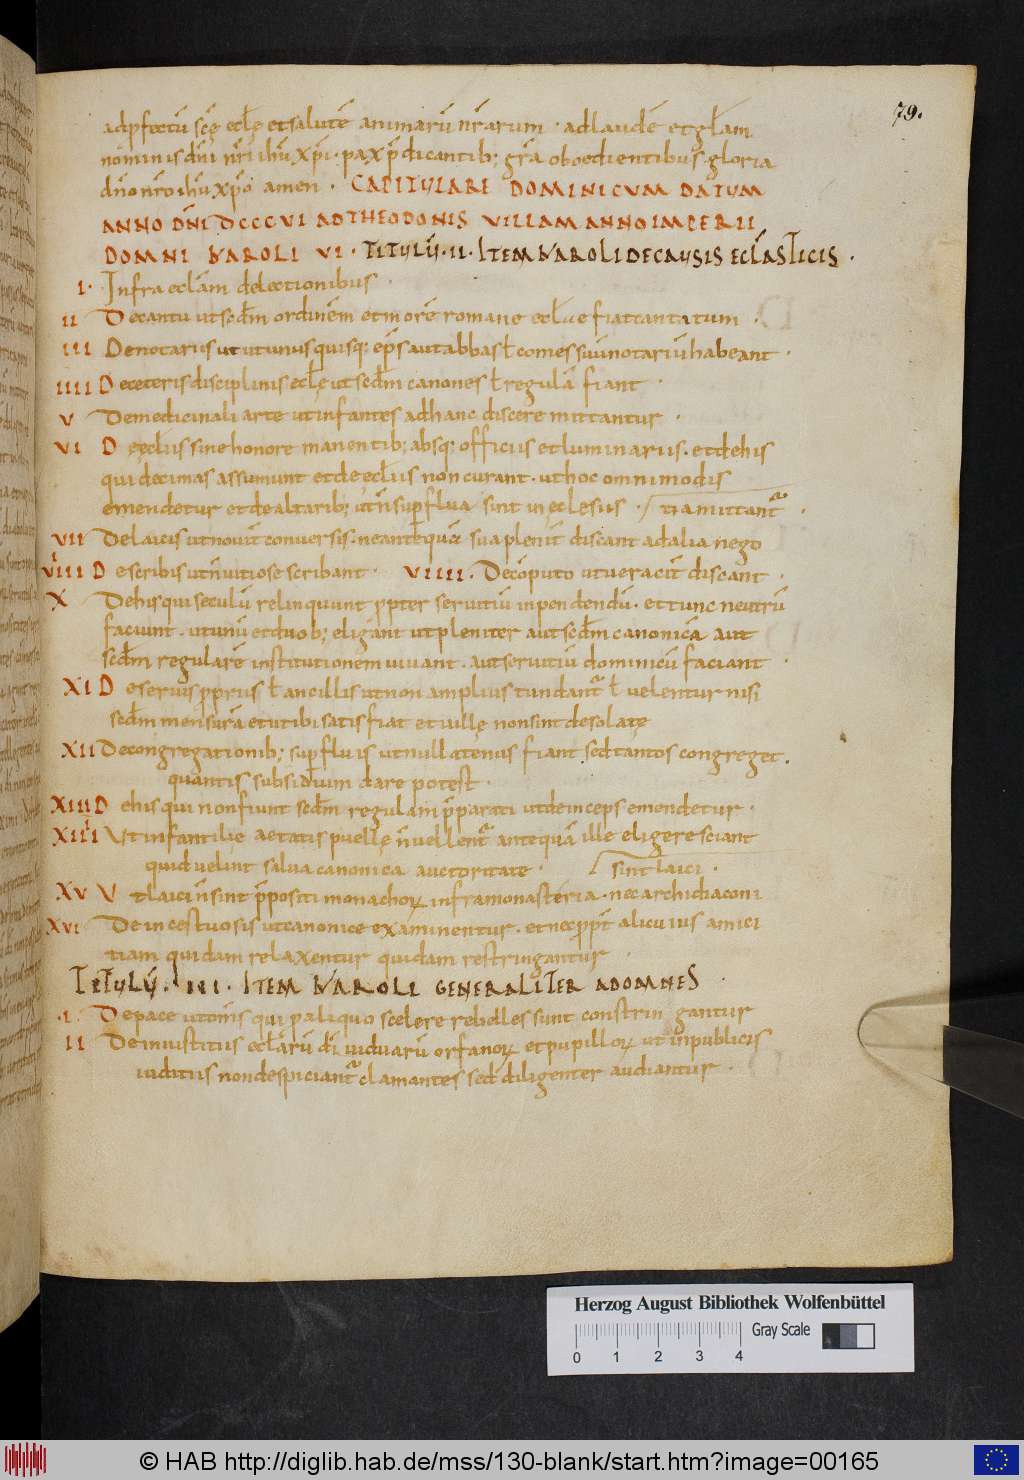 79.
adpfectū scę eclę et salutē animarū nr̄arum · ad laudē et gl̄am
nominis dn̄i nr̄i ihū xp̄i · pax p̄dicantib; gr̄a oboedientibus · gloria
dn̄o nr̄o ihū xp̄o amen · CAPITULARE DOMINICUM DATUM
ANNO DN̄I DCCCVI AD THEODONIS VILLAM ANNO IMPERII
DOMNI KAROLI VI · TITULŪ · II · ITEM KAROLI DE CAUSIS ECLASTICIS ·
I · Infra eclam de lectionibus ·
II De cantu ut scdm ordinem et morē romane eclae fiat cantatum ·
III De notariis ut ut unusquisq; ep̄s aut abbas ł comes suū notariū habeant ·
IIII De ceteris disciplinis eclę ut scdm canones ł regulā fiant ·
V De medicinali arte ut infantes ad hanc discere mittantur ·
VI De eclis sine honore manentib; absq; officiis et luminariis · et de his
qui decimas assumunt et de eclis non curant · ut hoc omnimodis
emendetur et de altarib; ut n̄ superflua sint in eclesiis · tiamittant ·
VII De laicis ut nouit conuersis · ne antequā sua plenit discant ad alia nego
VIII De scribis ut n̄ uitiose scribant · VIIII · De cōputo ut ueracit discant ·
X De his qui seculū relinquunt ppter seruitiū inpendendū · et tunc neutrū
faciunt · ut unū et duob; eligant ut pleniter aut scdm canonica aut
scdm regularē institutionem uiuant · aut seruitiū dominicū faciant ·
XI De seruis ppriis ł ancillis ut non amplius tundant ł uelentur nisi
scdm mensurā et ut ibi satis fiat et uille non sint desolatę
XII De congregationib; superfluis ut nullatenus fiant sed tantos congreget ·
quantis subsidium dare potest ·
XIII De his qui non fiunt scdm regulam p̄parati ut deinceps emendetur ·
XIIII Ut infantilie aetatis puellę n̄ uellent antequā ille eligere sciant
quid uelint salua canonica auctoritate · sint laici ·
XV Ut laici n̄ sint p̄positi monachorum infra monasteria · nec archidiaconi
XVI De incestuosis ut canonice examinentur · et nec ppt alicuius amici
tiam quidam relaxentur quidam restringantur ·
TITULŪ · III · ITEM KAROLI GENERALITER AD OMNES ·
· I · De pace ut om̄is qui p aliquo scelere rebelles sunt constringantur
II De iniustitiis eclarū dī uiduarū orfanorum et pupillorum ut in publicis
iuditiis non despiciant clamantes sed diligenter audiantur ·
Herzog August Bibliothek Wolfenbüttel
Gray Scale
0 1 2 3 4
© HAB http://diglib.hab.de/mss/130-blank/start.htm?image=00165